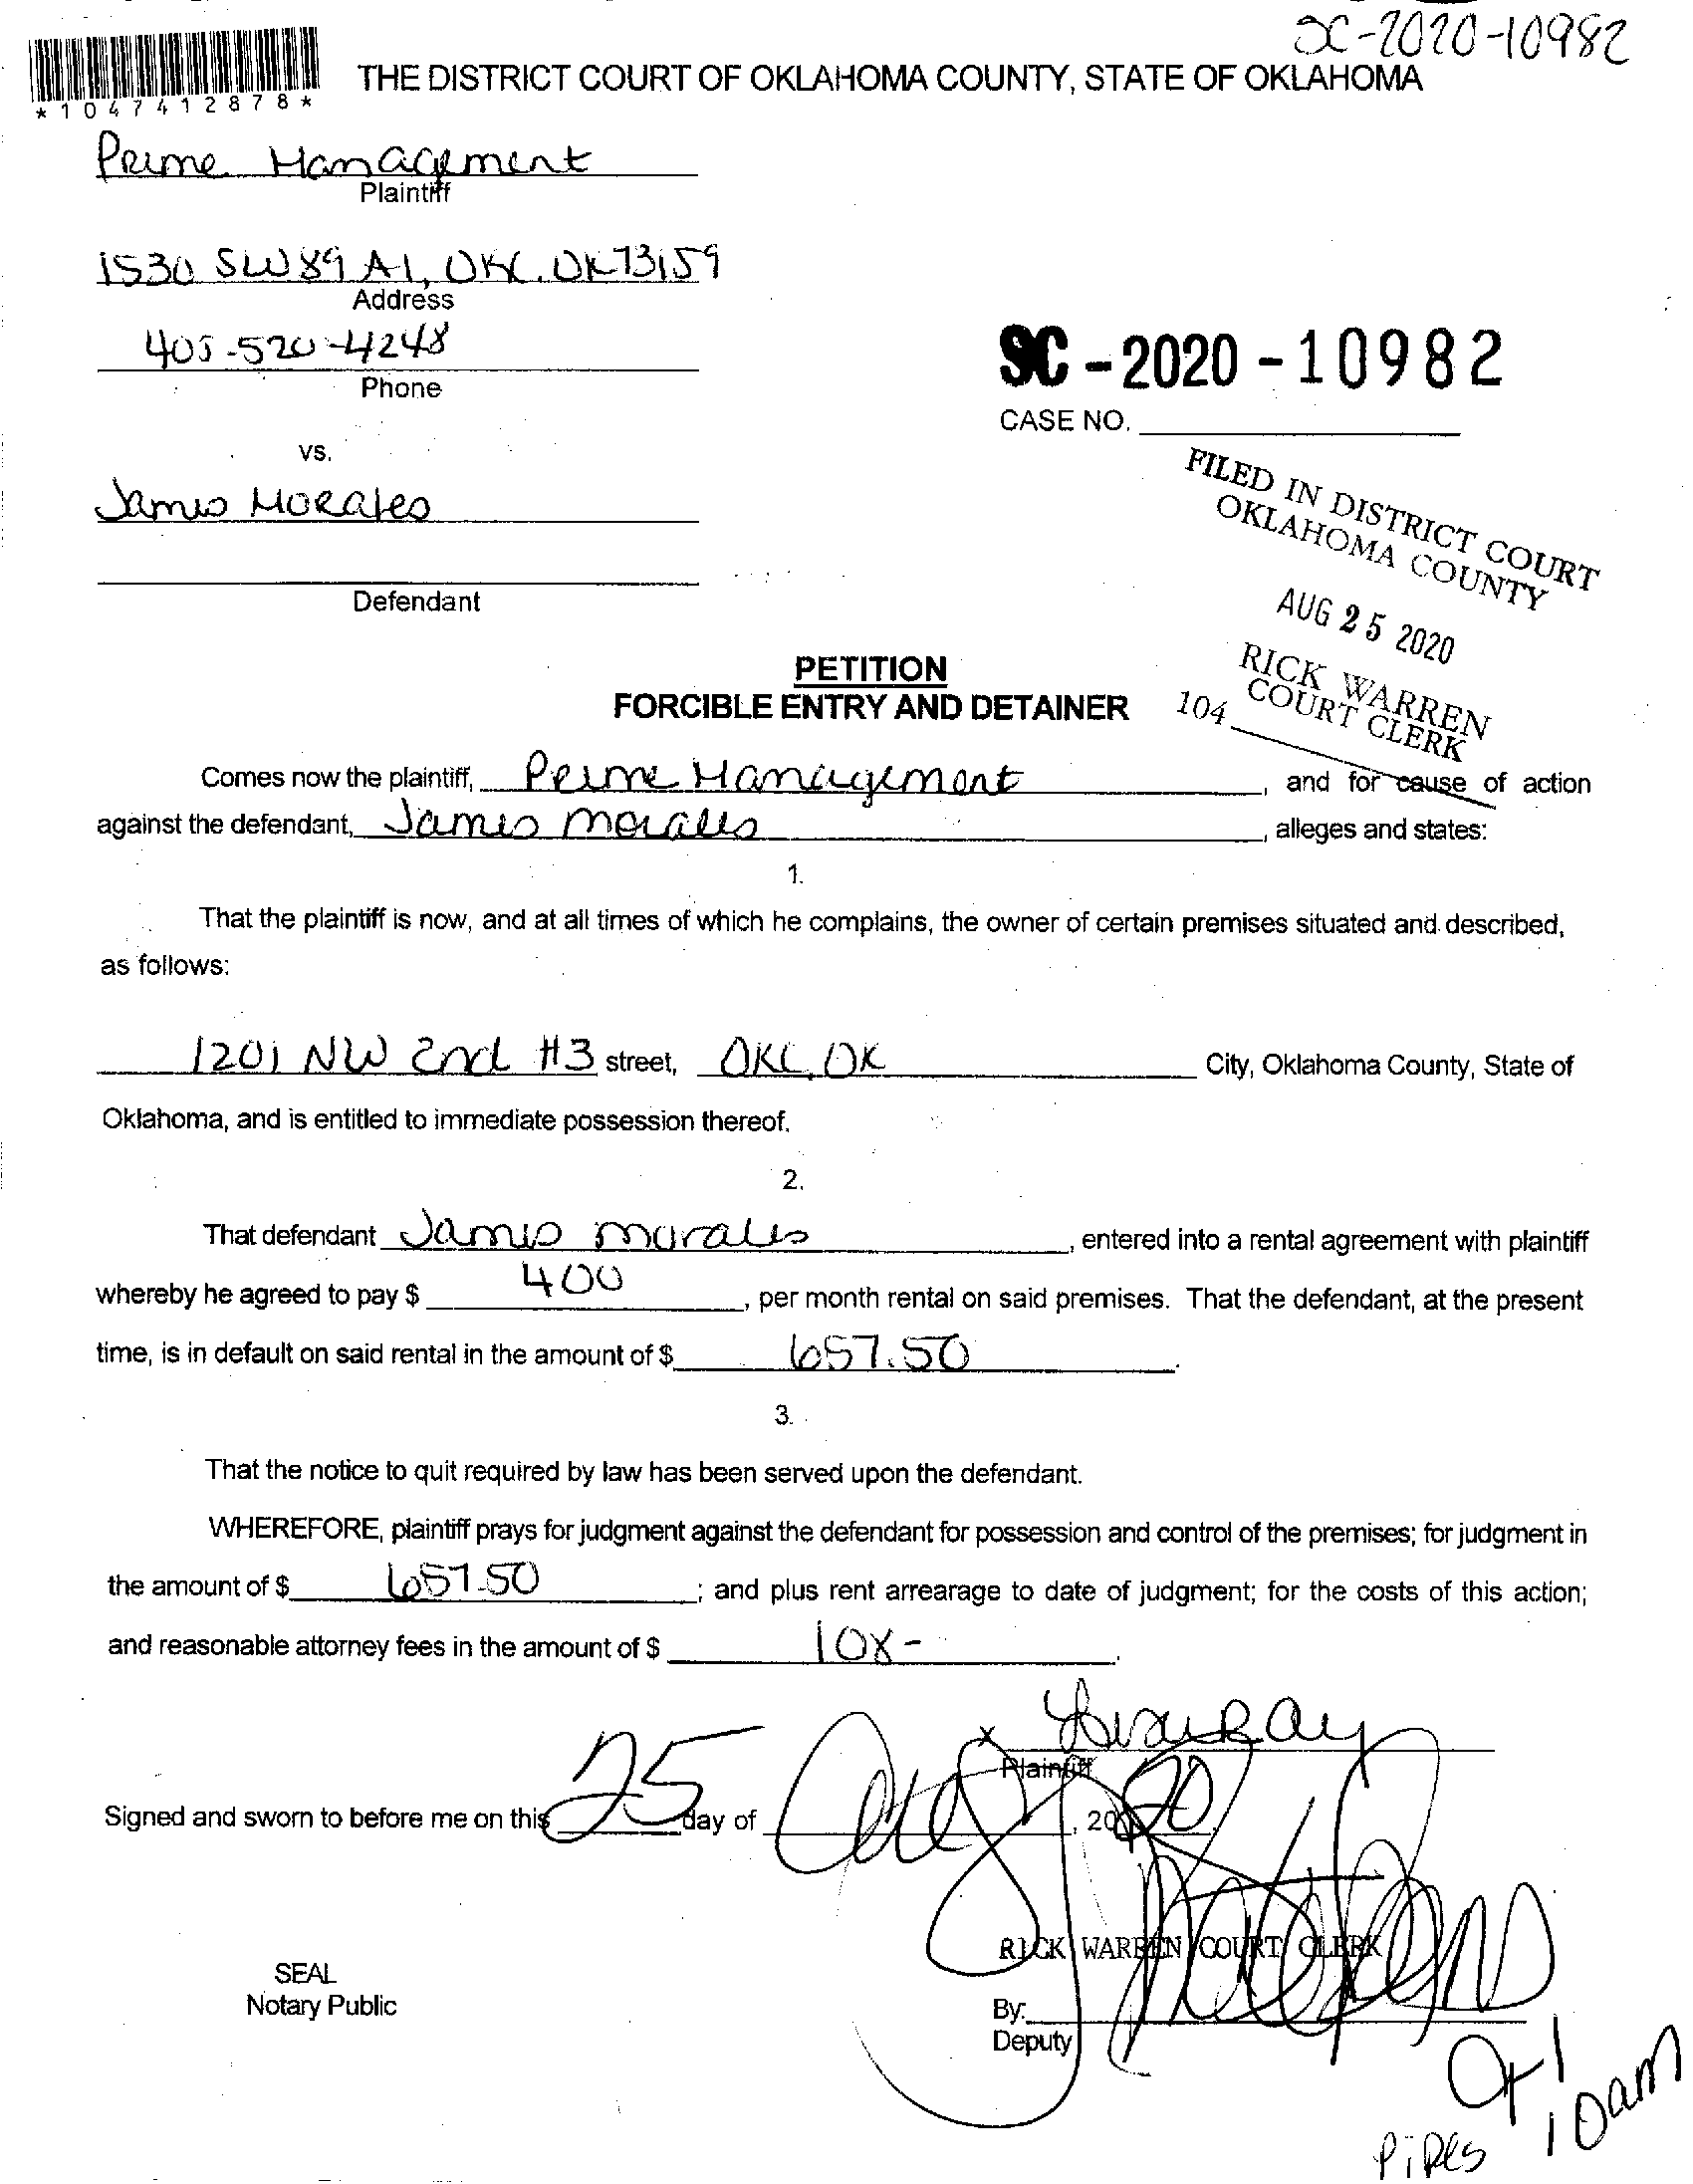 SC-2020-10982
*1047412878*
THE DISTRICT COURT OF OKLAHOMA COUNTY, STATE OF OKLAHOMA
Prime Management
Plaintiff
1530 SW 89 A1, OKC, OK 73159
Address
405-520-4248
Phone
SC-2020-10982
CASE NO.
vs.
James Morales
Defendant
FILED IN DISTRICT COURT
OKLAHOMA COUNTY
AUG 25 2020
RICK WARREN
COURT CLERK
104
PETITION
FORCIBLE ENTRY AND DETAINER
Comes now the plaintiff, Prime Management, and for cause of action
against the defendant, James Morales, alleges and states:
1.
That the plaintiff is now, and at all times of which he complains, the owner of certain premises situated and described,
as follows:
1201 NW 2nd #3 street, OKC, OK City, Oklahoma County, State of
Oklahoma, and is entitled to immediate possession thereof.
2.
That defendant James Morales, entered into a rental agreement with plaintiff
whereby he agreed to pay $ 400, per month rental on said premises. That the defendant, at the present
time, is in default on said rental in the amount of $ 657.50.
3.
That the notice to quit required by law has been served upon the defendant.
WHEREFORE, plaintiff prays for judgment against the defendant for possession and control of the premises; for judgment in
the amount of $ 657.50; and plus rent arrearage to date of judgment; for the costs of this action;
and reasonable attorney fees in the amount of $ 108-.
x
Plaintiff
Signed and sworn to before me on this 25 day of Aug, 2020.
RICK WARREN COURT CLERK
SEAL
Notary Public
By:
Deputy
10am
Pipes